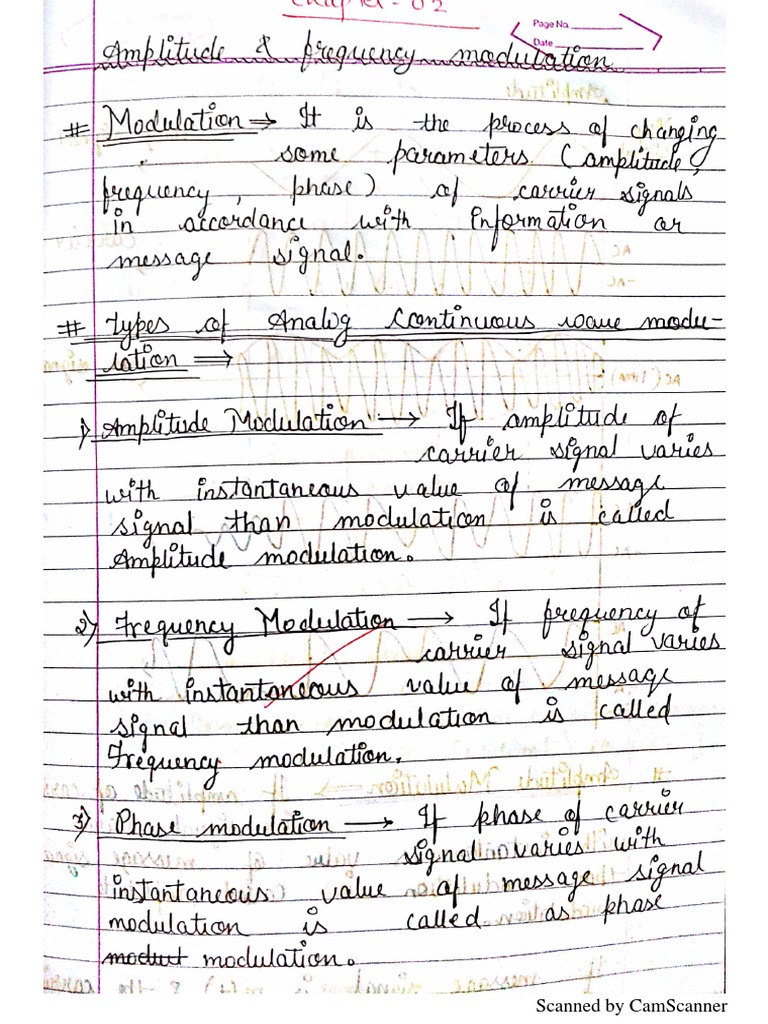 Chapter - 02
Page No.
Date
Amplitude & frequency modulation
# Modulation → It is the process of changing
some parameters (amplitude,
frequency, phase) of carrier signals
in accordance with Information or
message signal.
# Types of Analog Continuous wave modu-
lation ⇒
1) Amplitude Modulation → If amplitude of
carrier signal varies
with instantaneous value of message
signal than modulation is called
Amplitude modulation.
2) Frequency Modulation → If frequency of
carrier signal varies
with instantaneous value of message
signal than modulation is called
Frequency modulation.
3) Phase modulation → If phase of carrier
signal varies with
instantaneous value of message signal
modulation is called as phase
modulation.
Scanned by CamScanner